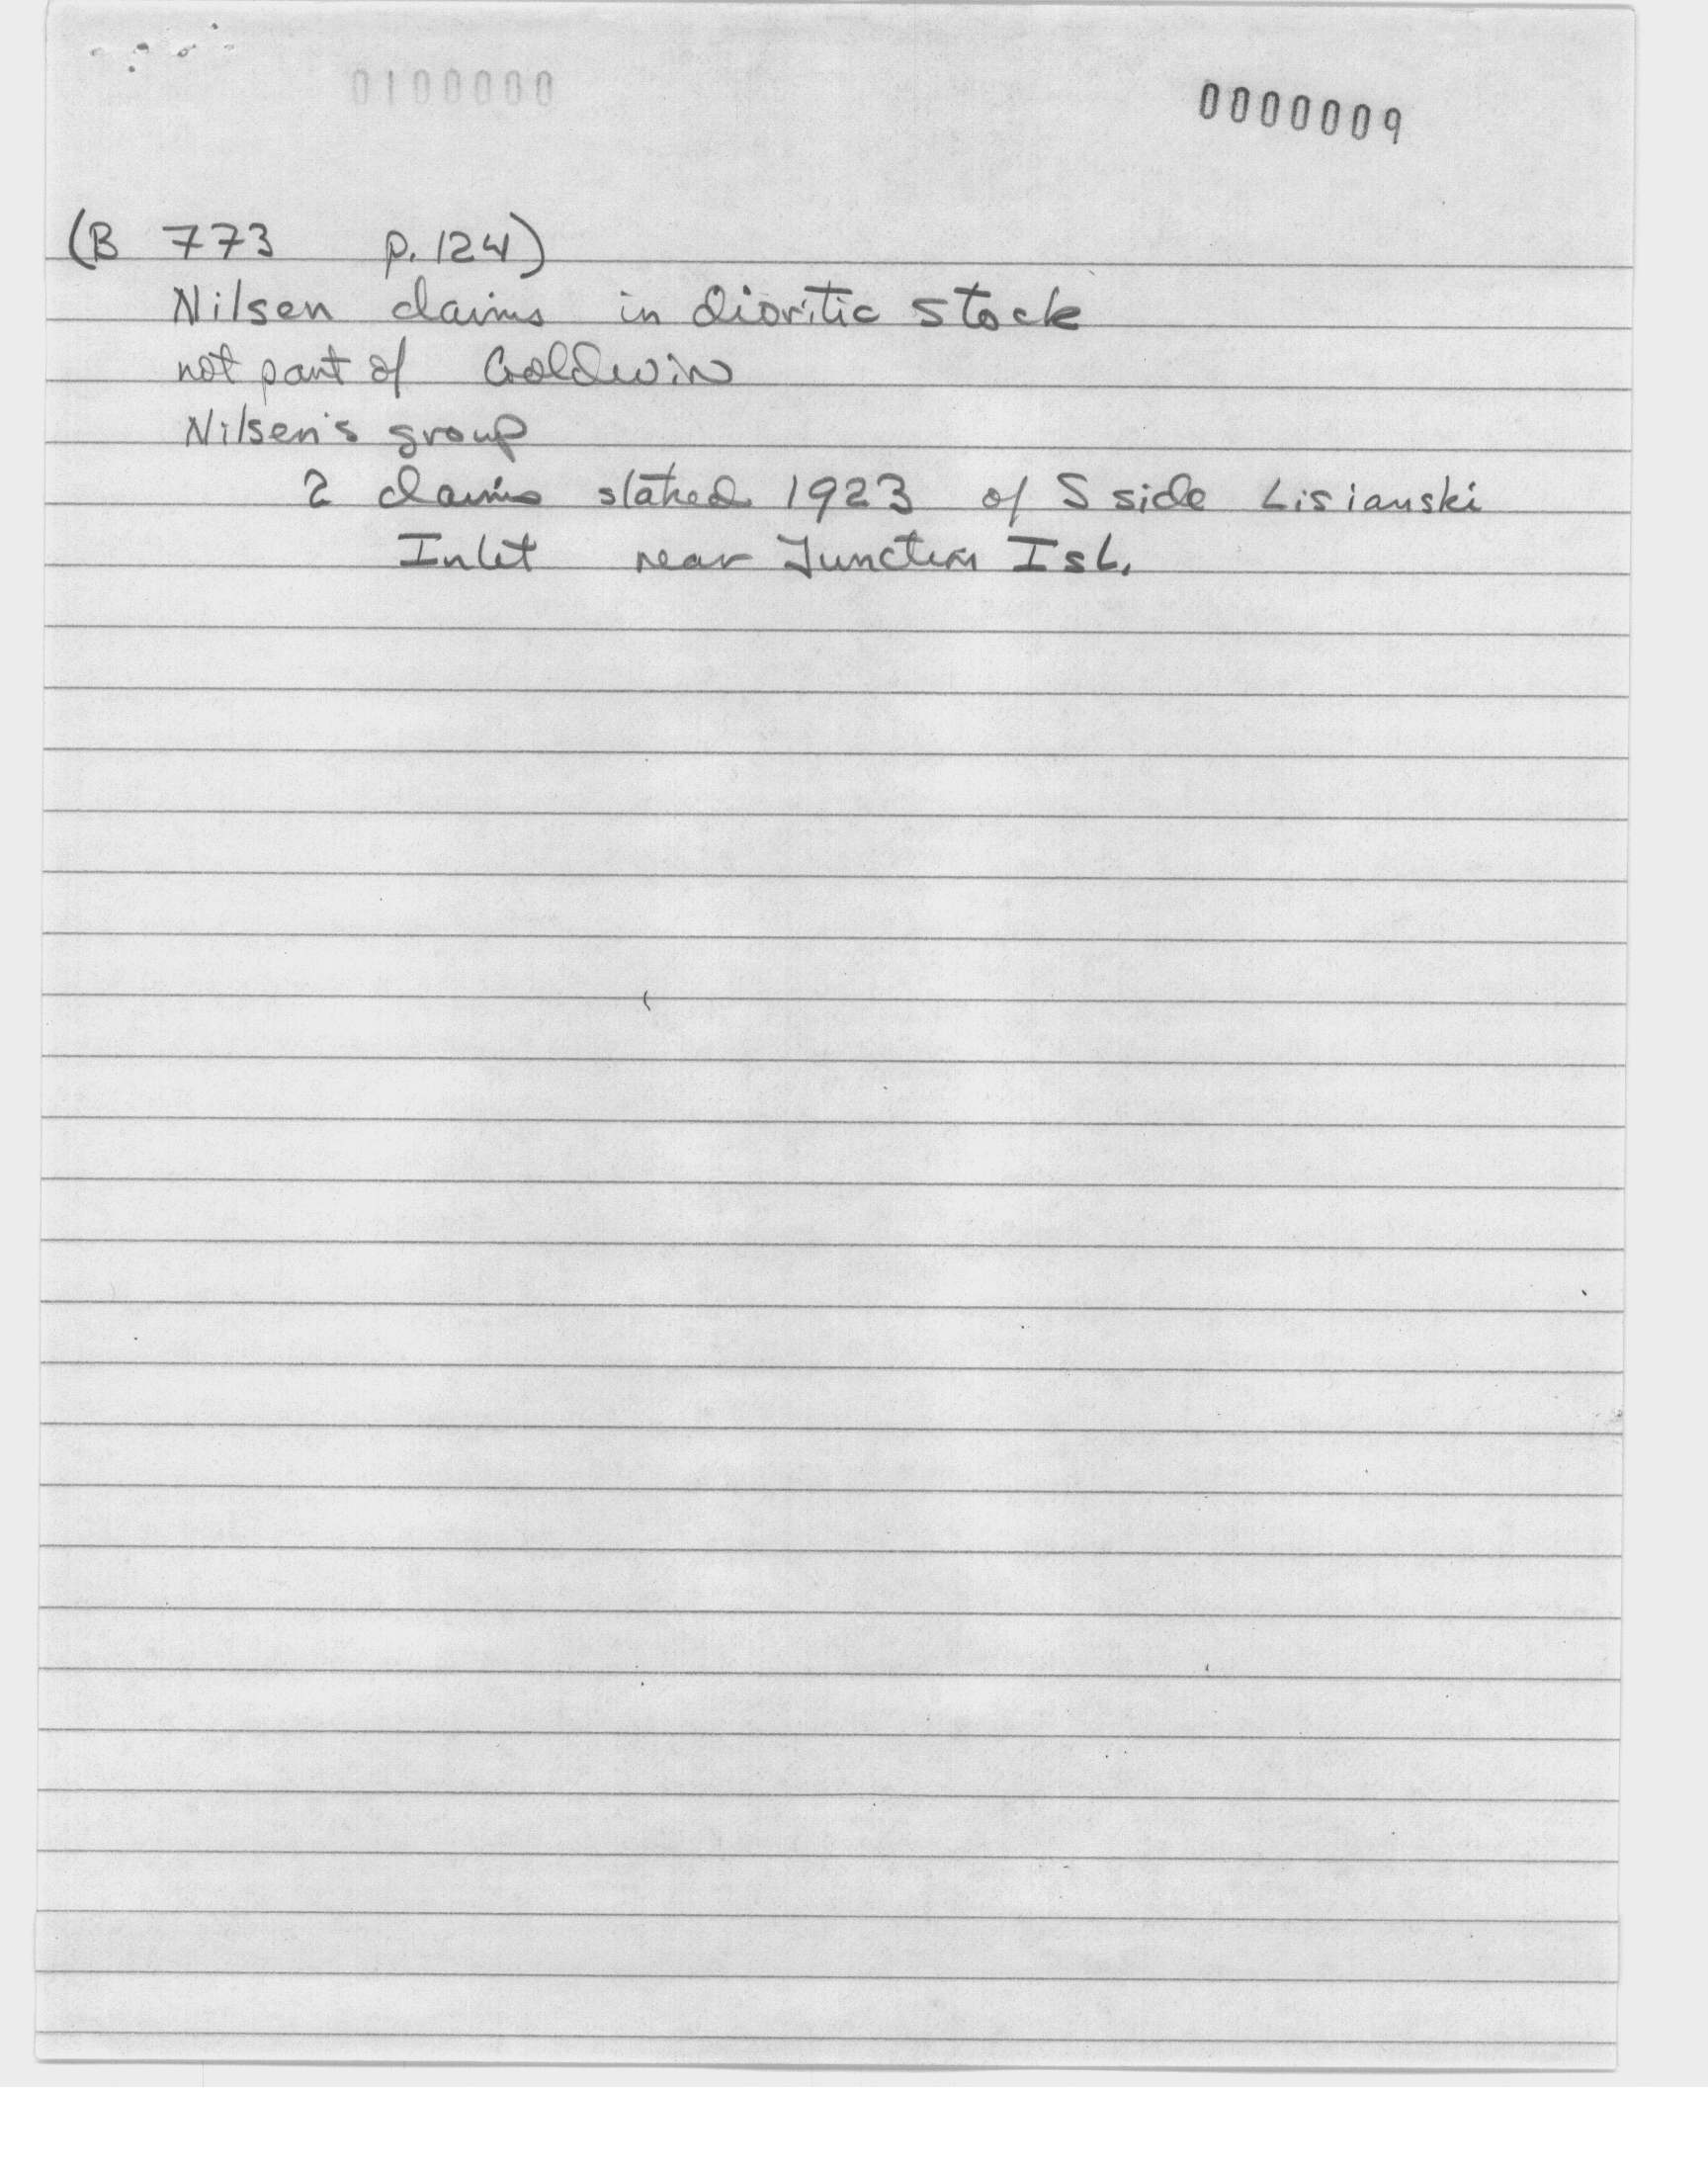 0100000
0000009
(B 773 p. 124)
Nilsen claims in dioritic stock
not part of Goldwin
Nilsen's group
2 claims staked 1923 of S side Lisianski
Inlet near Junction Isl.